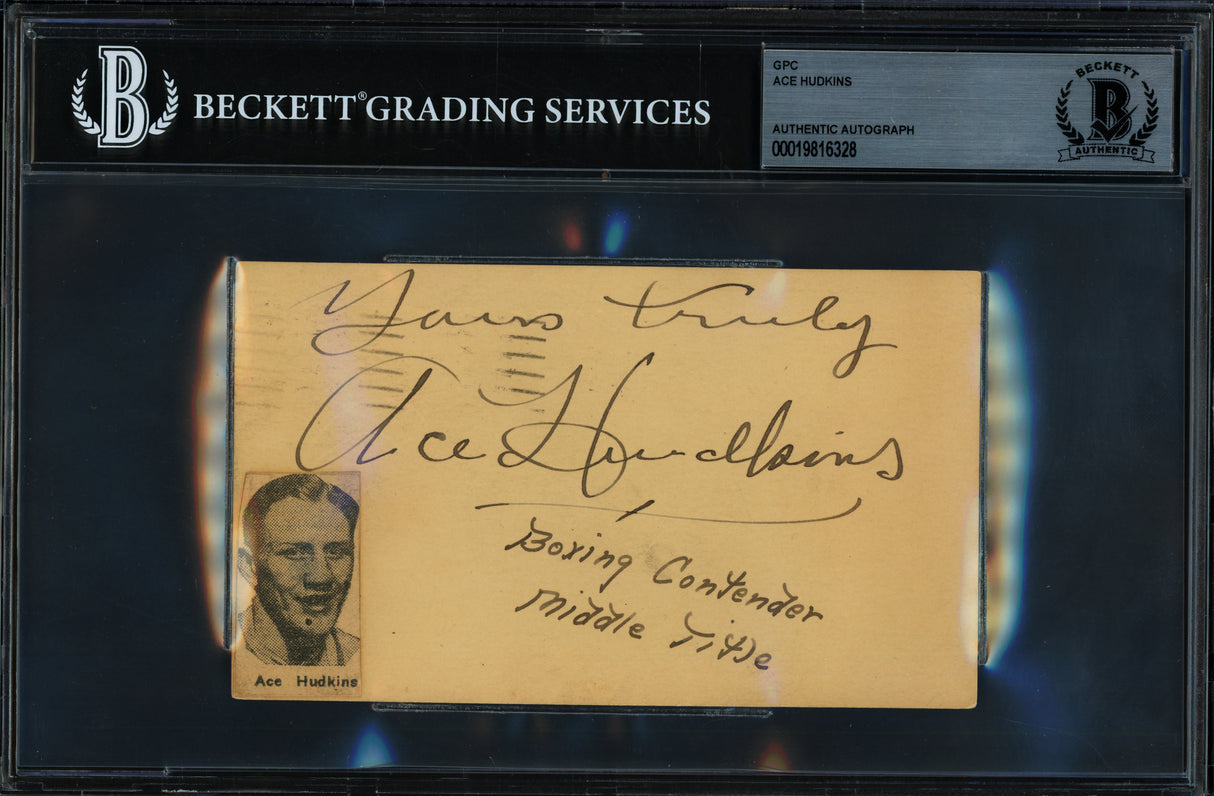 B BECKETT® GRADING SERVICES
GPC
ACE HUDKINS
AUTHENTIC AUTOGRAPH
00019816328
BECKETT
B
AUTHENTIC
Yours truly
Ace Hudkins
Boxing Contender
Middle Title
Ace Hudkins